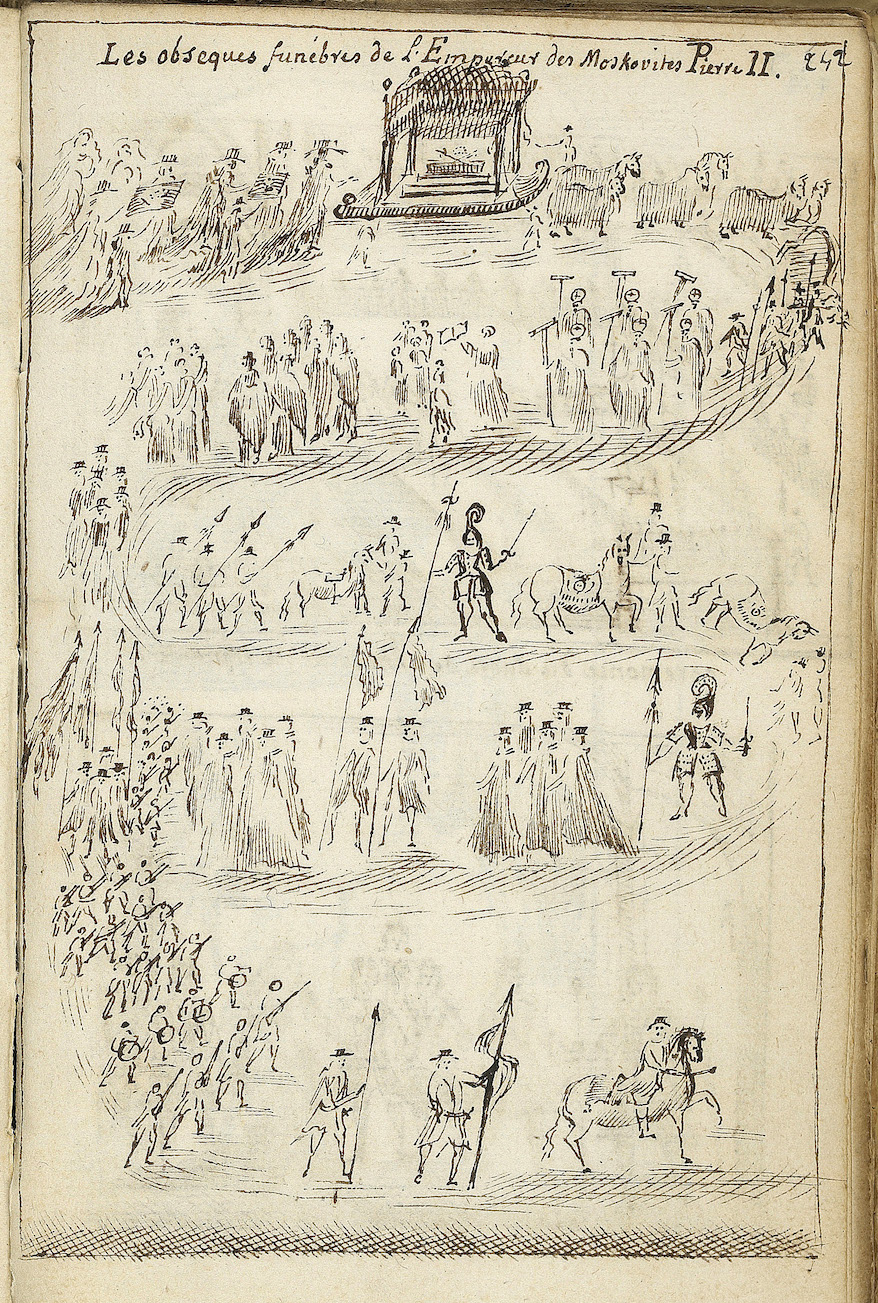 Les obseques funébres de l'Empereur des Moskovites Pierre II. 242